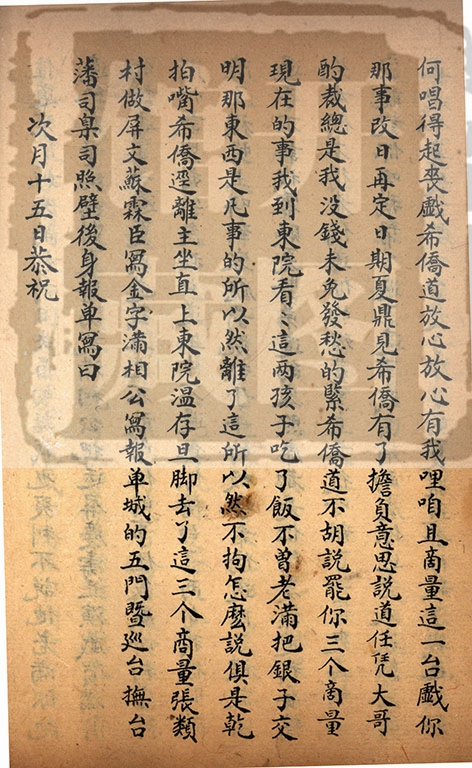 何唱得起喪戲希僑道放心放心有我哩咱且商量這一台戲你
那事改日再定日期夏鼎見希僑有了擔負意思說道任凭大哥
酌裁總是我没錢未免發愁的緊希僑道不胡說罷你三个商量
現在的事我到東院看〻這两孩子吃了飯不曾老滿把銀子交
明那東西是凡事的所以然離了這所以然不拘怎麼說俱是乾
拍嘴希僑逕離主坐直上東院温存旦脚去了這三个商量張類
村做屏文蘇霖臣寫金字滿相公寫報单城的五門暨廵台撫台
藩司臬司照壁後身報单寫曰
次月十五日恭祝